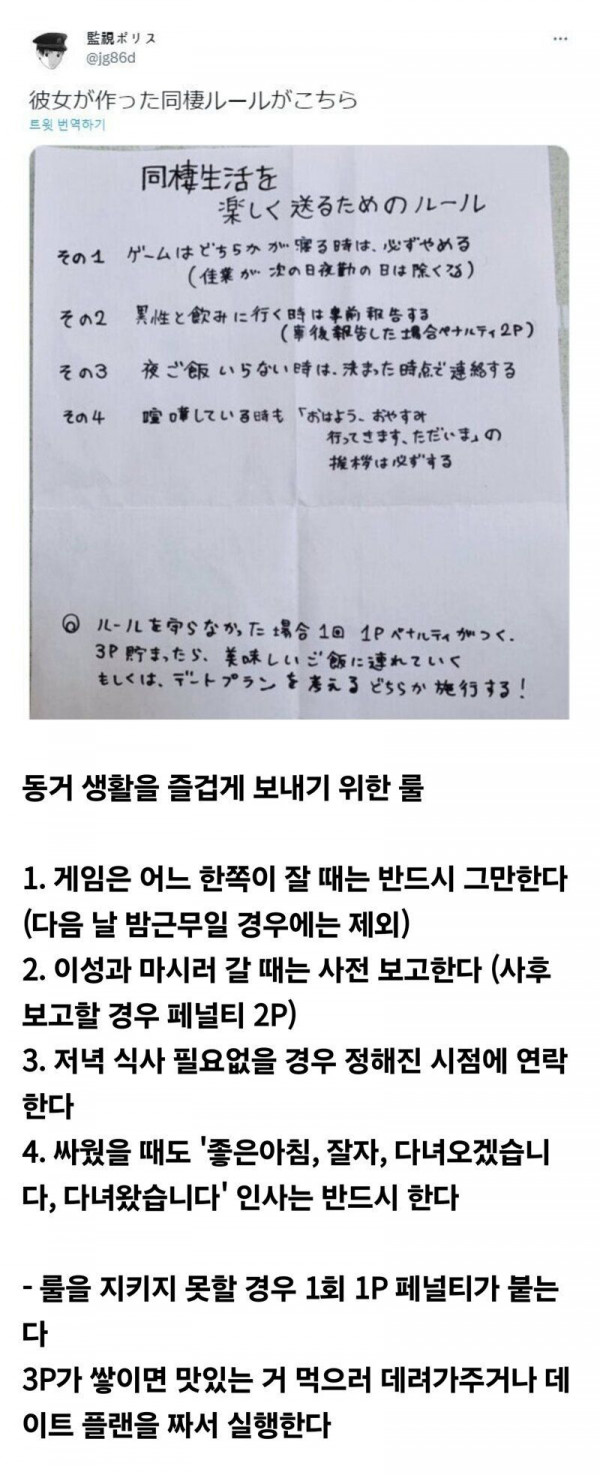 監視ポリス
@jg86d
彼女が作った同棲ルールがこちら
트윗 번역하기
同棲生活を
楽しく送るためのルール
その1 ゲームはどちらかが寝る時は、必ずやめる
(佳業が次の日夜勤の日は除くです)
その2 異性と飲みに行く時は事前報告する
(事後報告した場合ペナルティ2P)
その3 夜ご飯いらない時は、決まった時点で連絡する
その4 喧嘩している時も「おはよう、おやすみ
行ってきます、ただいま」の
挨拶は必ずする
◎ ルールを守らなかった場合1回 1Pペナルティがつく.
3P貯まったら、美味しいご飯に連れていく
もしくは、デートプランを考えるどちらか施行する!
동거 생활을 즐겁게 보내기 위한 룰
1. 게임은 어느 한쪽이 잘 때는 반드시 그만한다
(다음 날 밤근무일 경우에는 제외)
2. 이성과 마시러 갈 때는 사전 보고한다 (사후
보고할 경우 페널티 2P)
3. 저녁 식사 필요없을 경우 정해진 시점에 연락
한다
4. 싸웠을 때도 '좋은아침, 잘자, 다녀오겠습니
다, 다녀왔습니다' 인사는 반드시 한다
- 룰을 지키지 못할 경우 1회 1P 페널티가 붙는
다
3P가 쌓이면 맛있는 거 먹으러 데려가주거나 데
이트 플랜을 짜서 실행한다